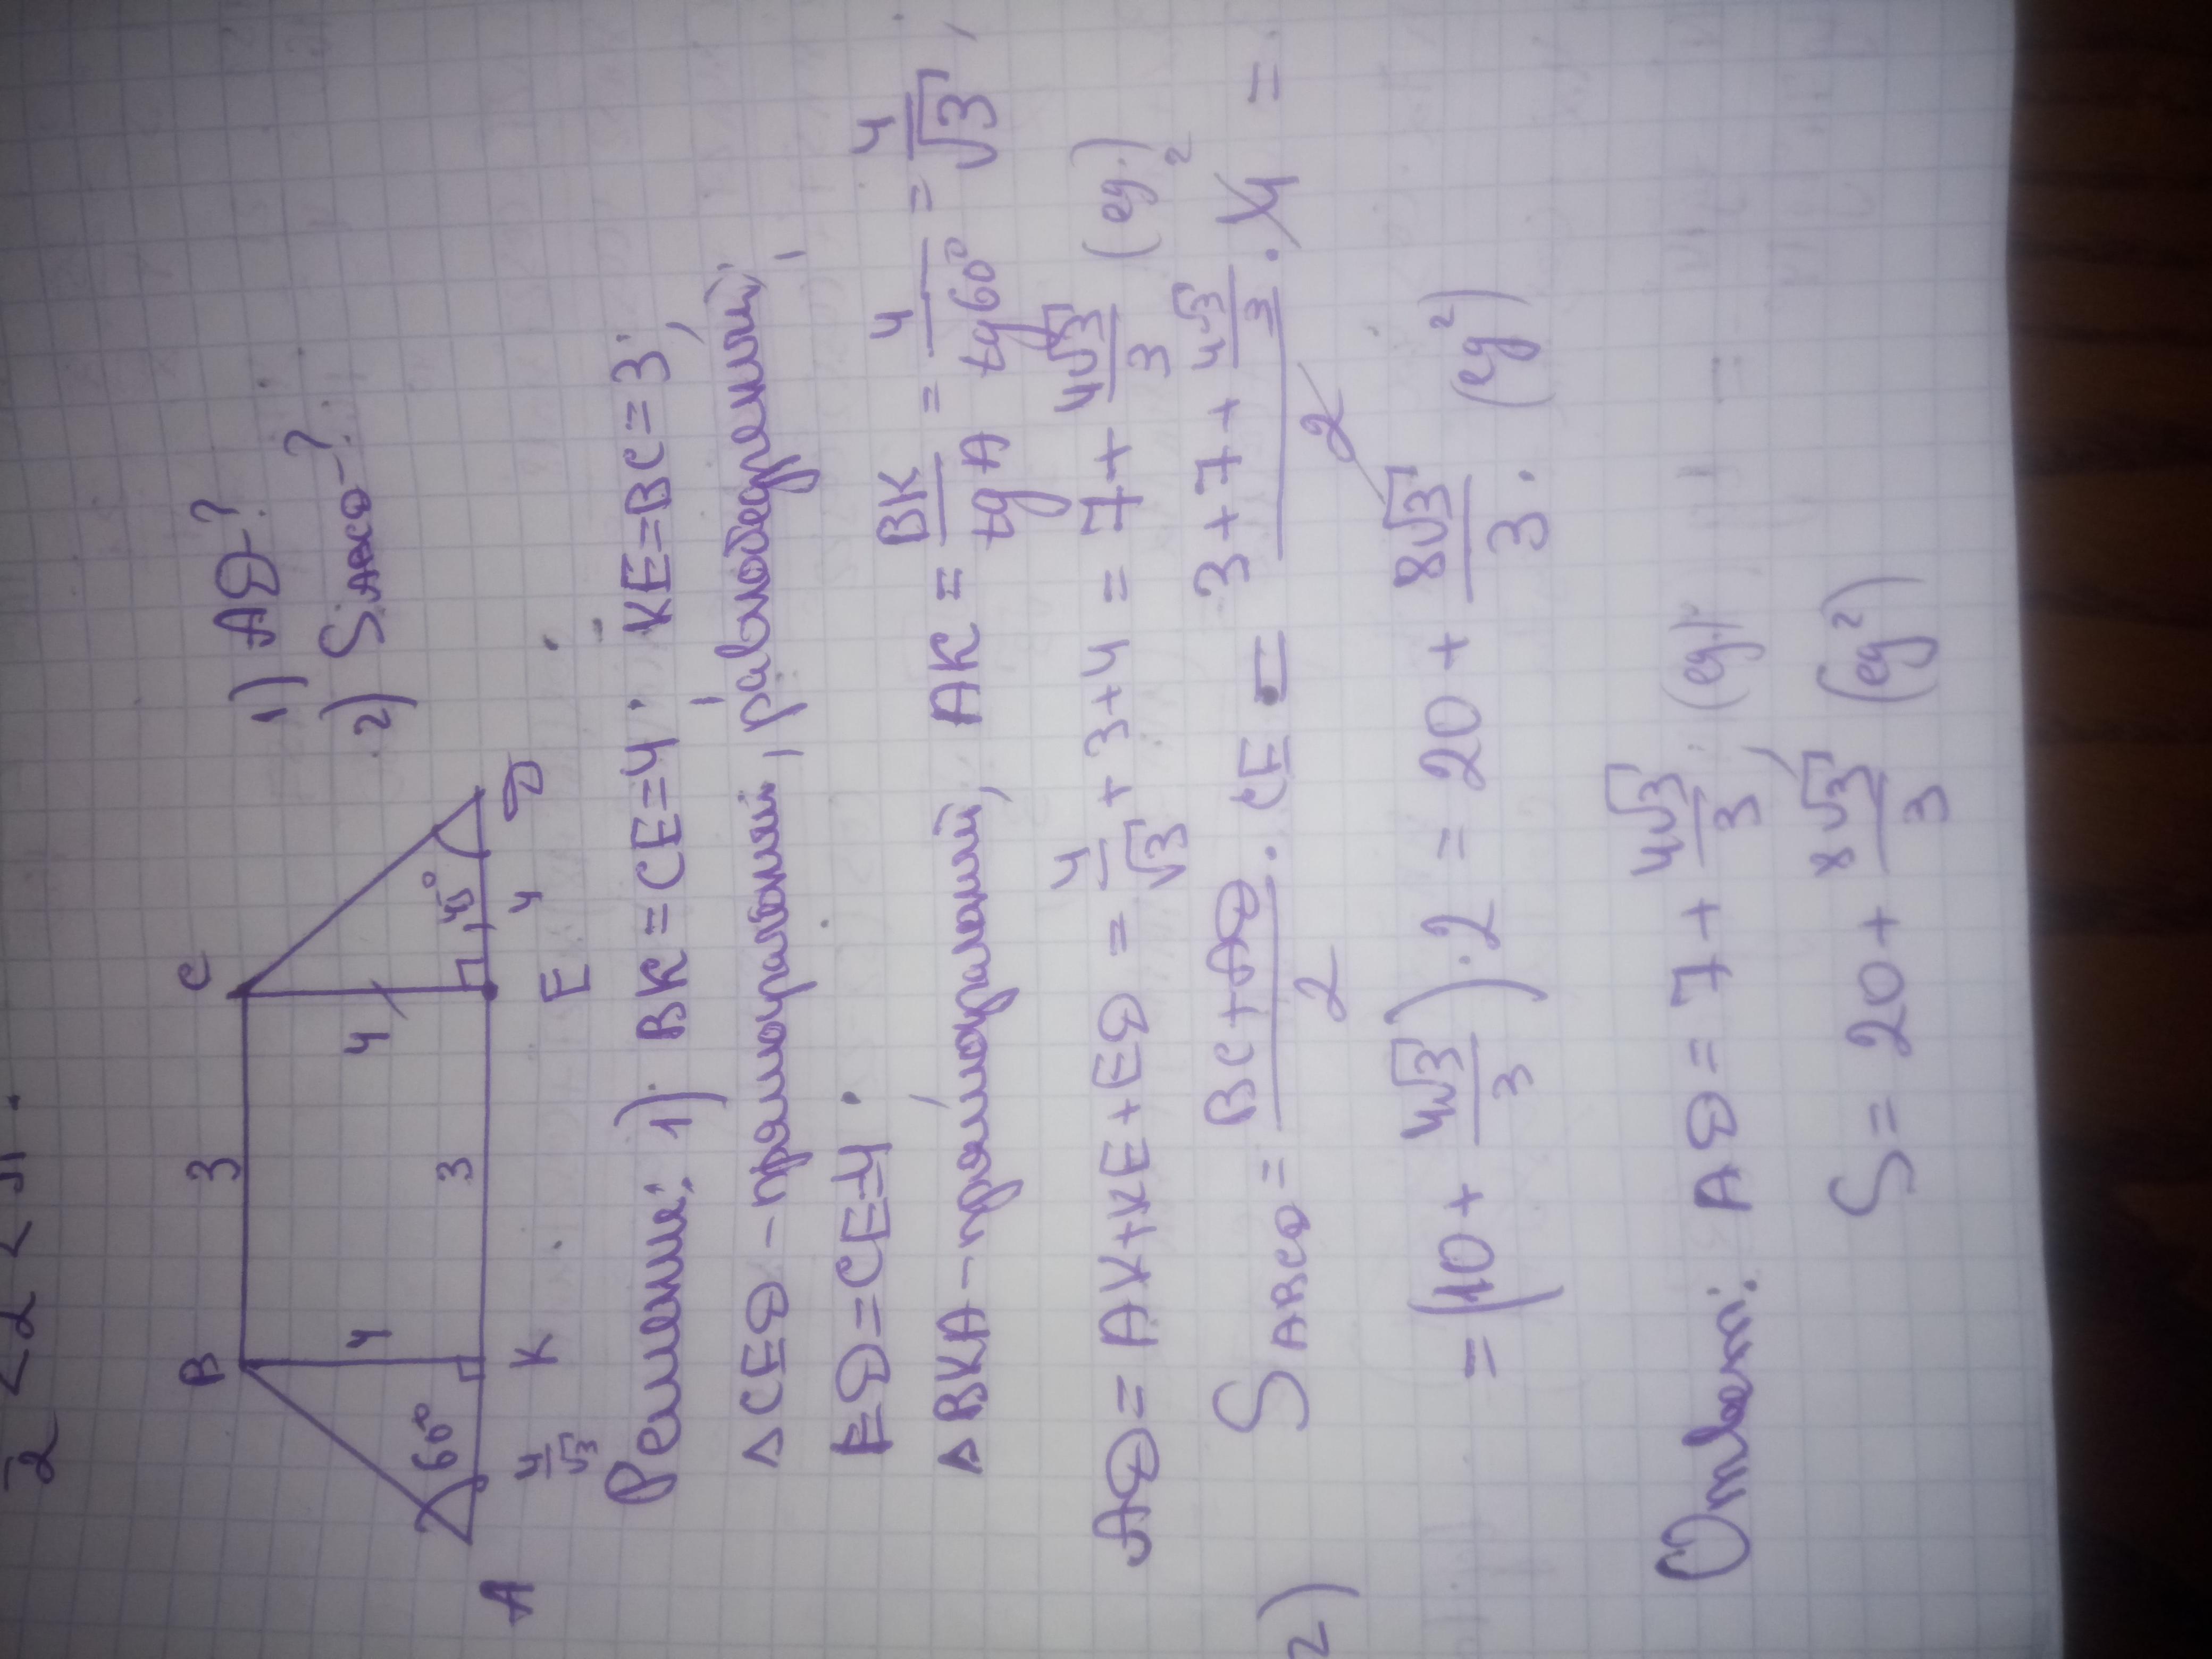 2 < 2 < 
1) AD-?
2) SABCD-?
B 3 C
4 4
60° 45°
3
A 4/√3 K E 4 D
Решение: 1) BK=CE=4. KE=BC=3;
△CED - прямоугольный, равнобедренный,
ED=CE=4.
△BKA - прямоугольный, AK = BK/tgA = 4/tg60° = 4/√3,
AD = AK+KE+ED = 4/√3 + 3+4 = 7+ 4√3/3 (ед.)
2) SABCD = (BC+AD)/2 · CE = (3+7+ 4√3/3)/2 · 4 2 =
= (10+ 4√3/3)·2 = 20+ 8√3/3. (ед²)
Ответ: AD = 7+ 4√3/3, (ед.)
S = 20+ 8√3/3 (ед²)